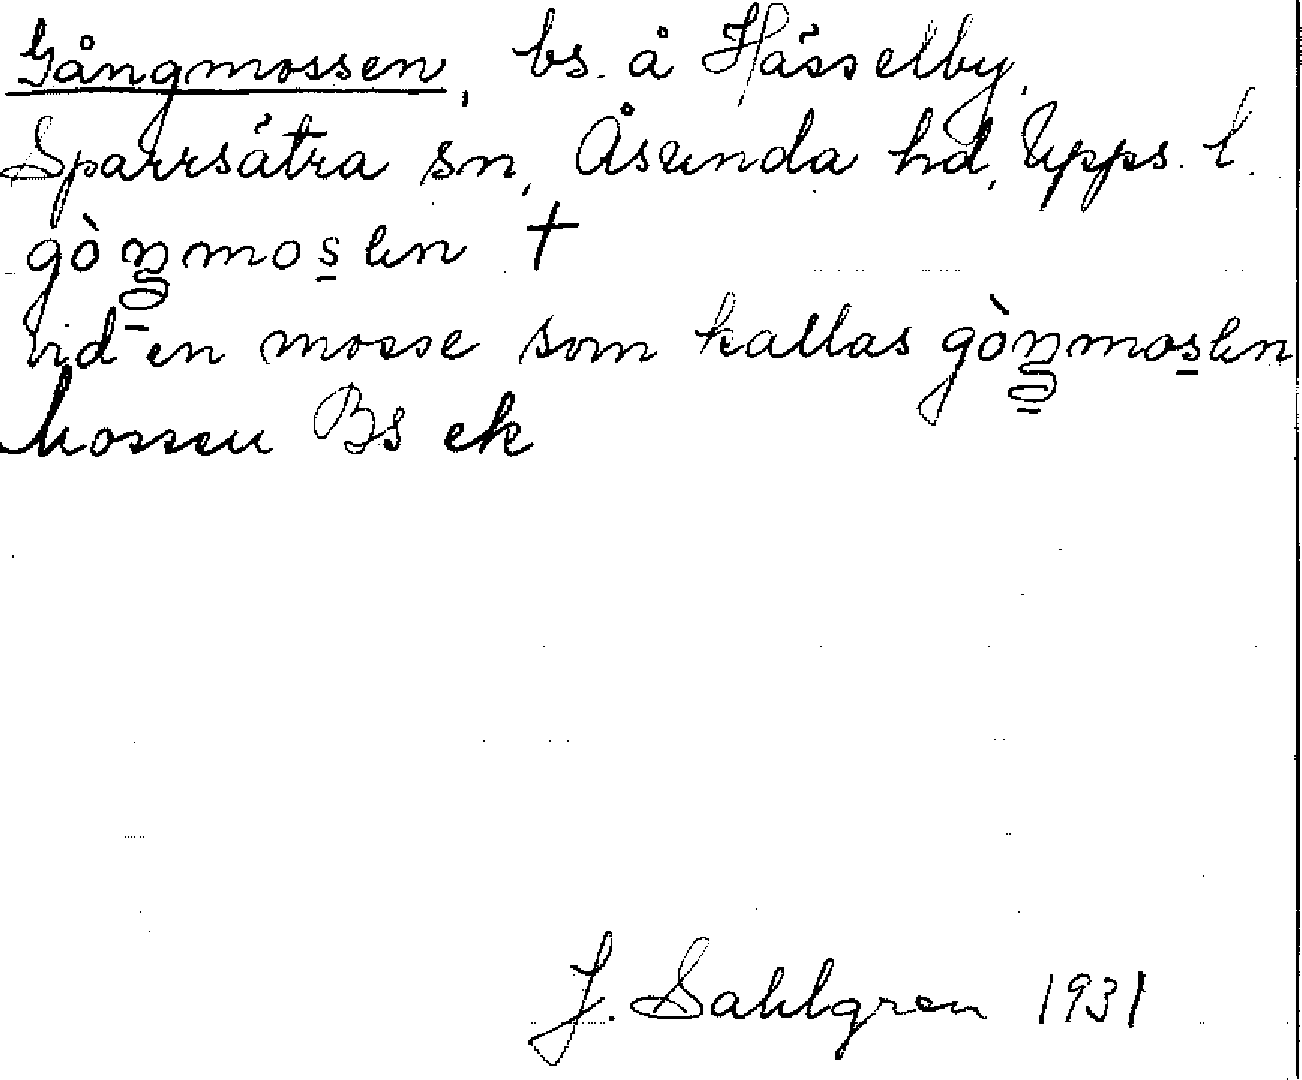 Gångmossen, bs. å Hässelby,
Sparrsätra sn, Åsunda hd, Upps. l.
gòŋmosen †
vid en mosse som kallas gòŋmosen
Mossen Bs ek
J. Sahlgren 1931